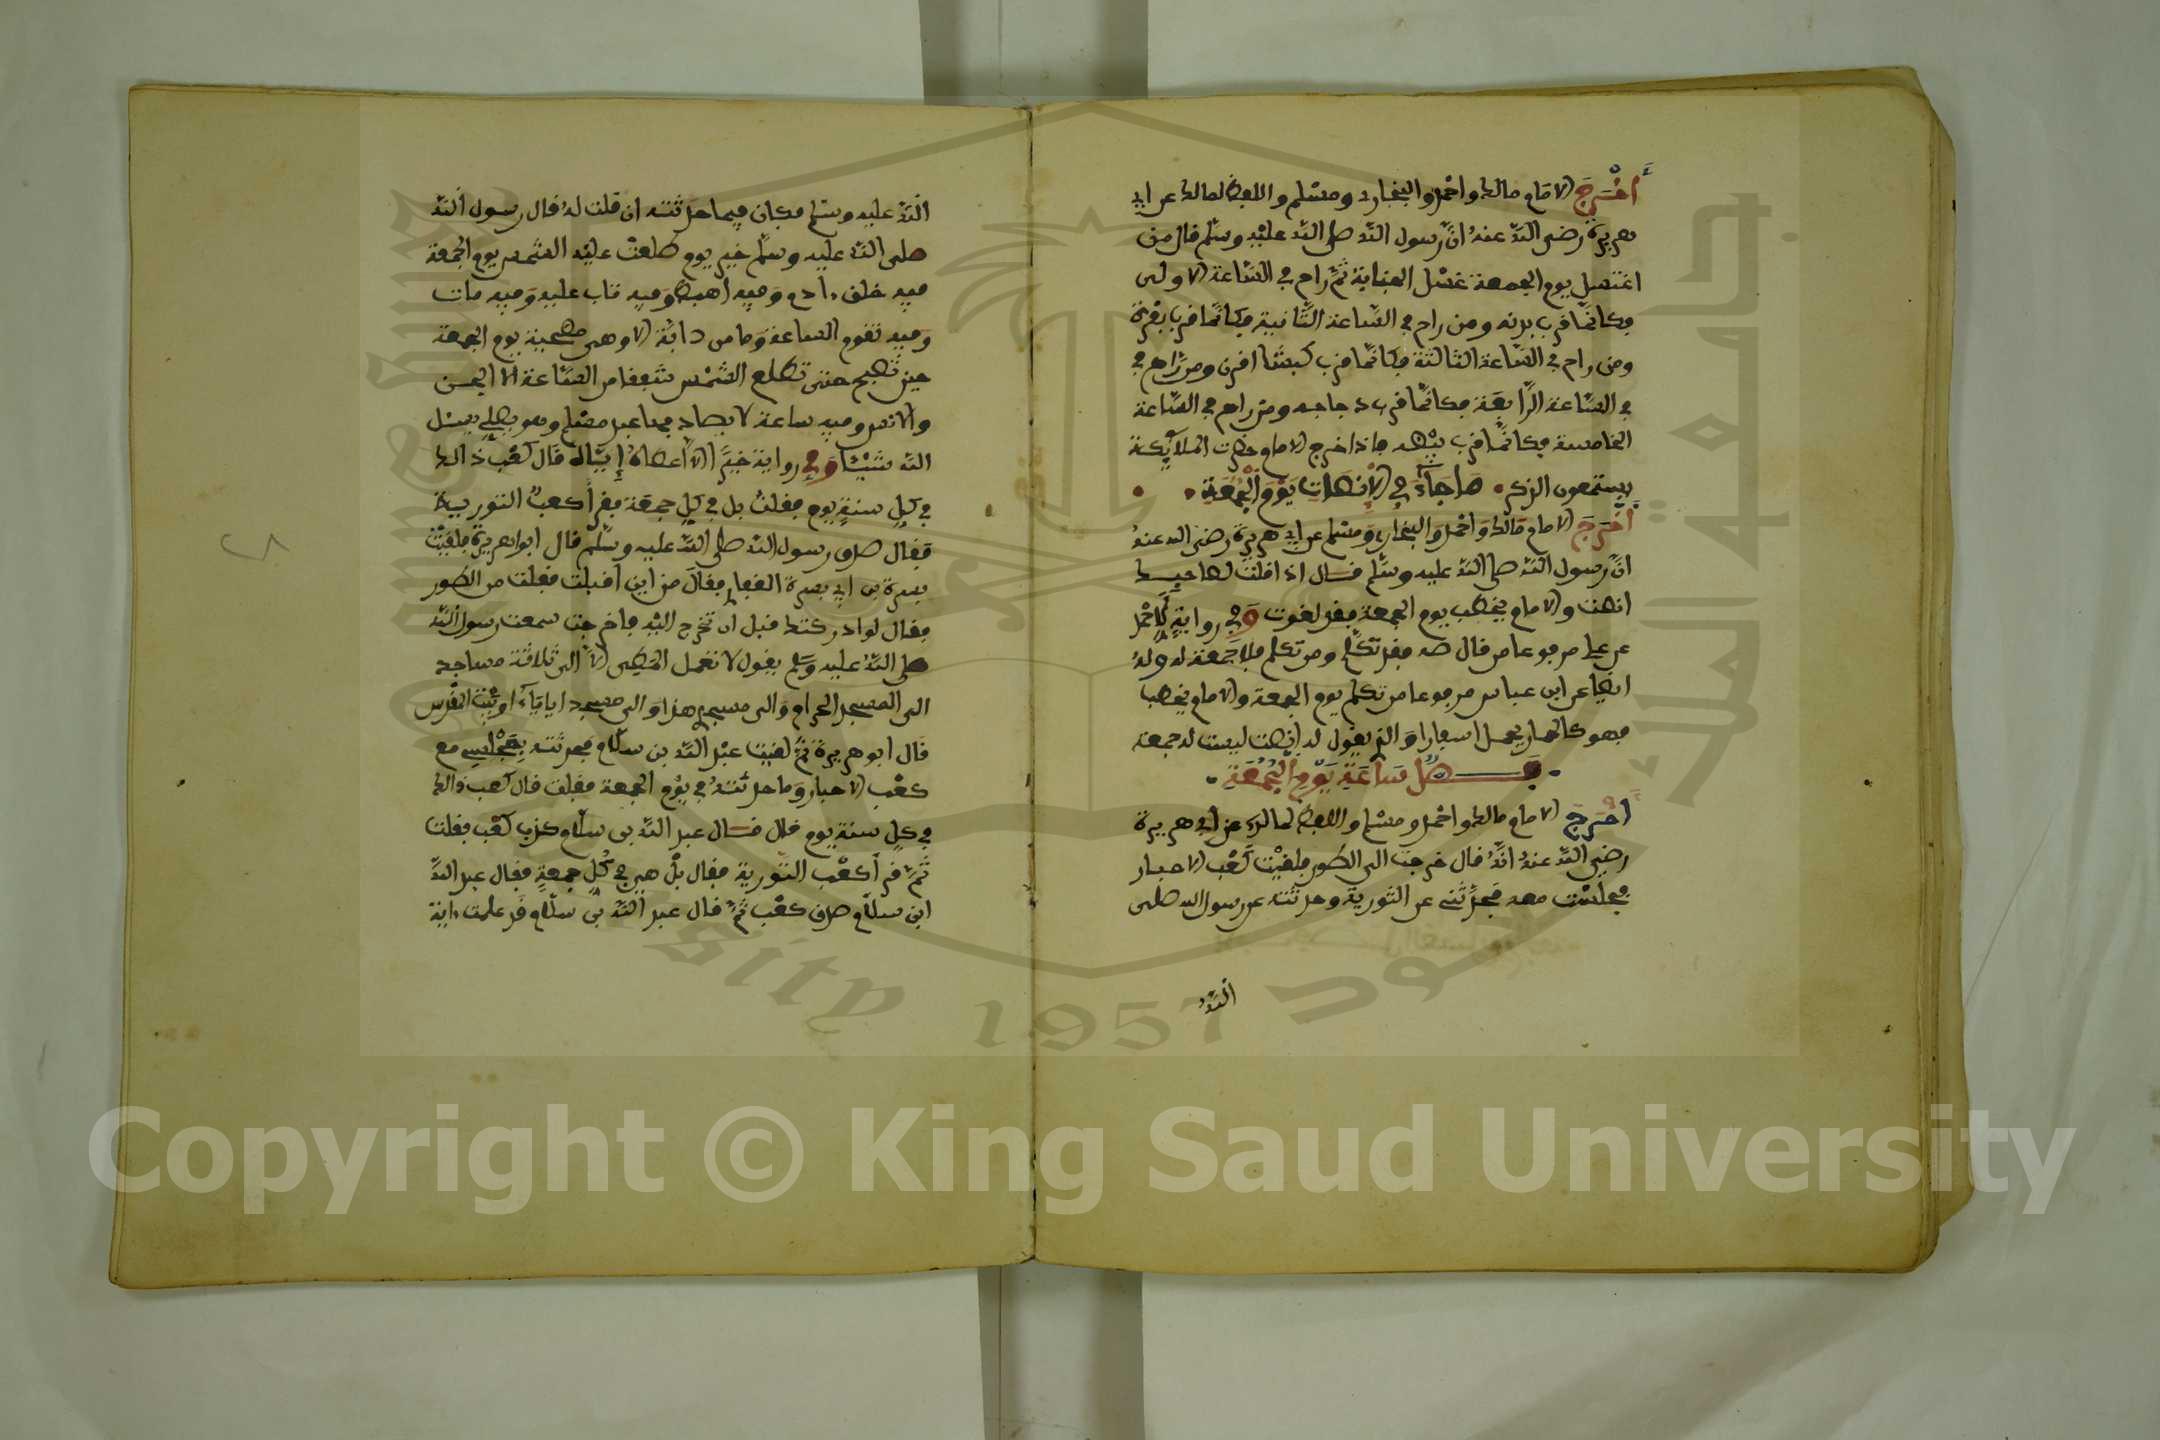 أخرج الامام مالك واحمد والبخاري ومسلم واللفظ لمالك عن ابي
هريرة رضي الله عنه انّ رسول الله صلى الله عليه وسلّم قال من
اغتسل يوم الجمعة غسْل الجنابة ثمّ راح في السّاعة الاولى
فكانّما قرب بدنه ومن راح في السّاعة الثّانية فكانّما قرب بقرة
ومن راح في السّاعة الثالثة فكانّما قرب كبشا اقرن ومن راح في
في السّاعة الرّابعة فكانّما قرب دجاجه ومن راح في السّاعة
الخامسة فكانّما قرب بيْضه فاذا خرج الامام حضرت الملآيكة
يستمعون الذكر ما جآء في الانصات يوم الجمعة
أخرج الامام مالك واحمد والبخاري ومسلم عن ابي هريرة رضي الله عنه
انّ رسول الله صلى الله عليه وسلّم قال اذا قلت لصاحبك
انصت والامام يخطب يوم الجمعة فقد لغوت وفي رواية لاحمد
عن علي مرفوعا من قال صه فقد تكلّم ومن تكلم فلا جمعة له وله
ايضا عن ابن عباس مرفوعا من تكلم يوم الجمعة والامام يخطب
فهو كالحمار يحمل اسفارا والذي يقول له انصت ليست له جمعة
فضل ساعة يوم الجمعة
أخرج الامام مالك واحمد ومسلم واللفظ لمالك عن ابي هريرة
رضي الله عنه انّه قال خرجت الى الطور فلقيْت كعْب الاحبار
فجلسْت معه فحدّثني عن التّورية وحدثته عن رسول الله صلى
اللّه
اللّه عليه وسلم فكان فيما حدثته ان قلت له قال رسول اللّه
صلى اللّه عليه وسلّم خير يوم طلعتْ عليْه الشّمس يوم الجمعة
فيه خلق ءادم وفيه اهبط وفيه تاب عليه وفيه مات
وفيه تقوم الساعة وما من دابّة الا وهي مصيخة يوم الجمعة
حين تصبح حتى تطلع الشّمْس شفقا من السّاعة الا الجن
والانس وفيه ساعة لا يصادفها عبد مسْلم وهو يصلي يسئل
اللّه شيْئا وفي رواية خيرًا الا أعطاه إيّاه قال كعْب ذالك
في كل سنة يوم فقلت بل في كل جمعة فقرأ كعب التورية
فقال صدق رسول اللّه صلى اللّه عليه وسلّم قال ابو هريرة فلقيت
بصرة بن ابي بصرة الغفاري فقال من اين اقبلت فقلت من الطور
فقال لو ادركتك قبل ان تخرج اليه ما خرجت سمعت رسول اللّه
صلى اللّه عليه وسلم يقول لا تعمل المطي الا الى ثلاثة مساجد
الى المسجد الحرام والى مسجدي هذا والى مسجد ايلياء او بيت المقدس
قال ابو هريرة ثمّ لقيت عبْد اللّه بن سلام فحدثته بمجْلسي مع
كعْب الاحبار وما حدثته في يوم الجمعة فقلت قال كعب ذالك
في كل سنة يوم قال قال عبد اللّه بن سلّام كذب كعْب فقلت
ثمّ قرأ كعْب التّورية فقال بلْ هي في كلّ جمعة فقال عبد اللّه
ابن سلّام صدق كعْب ثمّ قال عبد اللّه بن سلّام قد علمت اية
جامعة الملك سعود
King Saud University 1957
Copyright © King Saud University